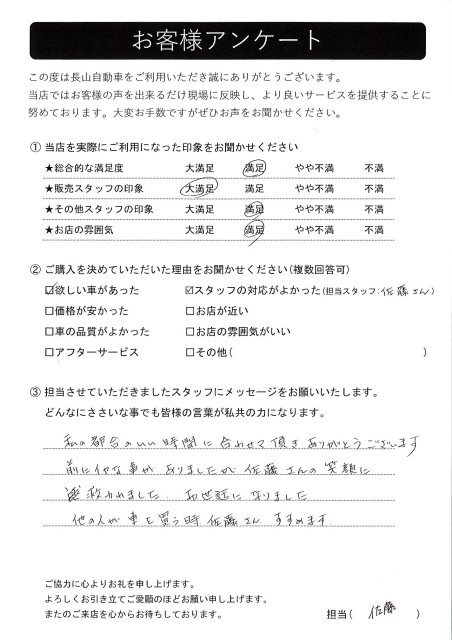 お客様アンケート
この度は長山自動車をご利用いただき誠にありがとうございます。
当店ではお客様の声を出来るだけ現場に反映し、より良いサービスを提供することに
努めております。大変お手数ですがぜひお声をお聞かせください。
① 当店を実際にご利用になった印象をお聞かせください
★総合的な満足度 大満足 満足 やや不満 不満
★販売スタッフの印象 大満足 満足 やや不満 不満
★その他スタッフの印象 大満足 満足 やや不満 不満
★お店の雰囲気 大満足 満足 やや不満 不満
② ご購入を決めていただいた理由をお聞かせください(複数回答可)
☑欲しい車があった ☑スタッフの対応がよかった(担当スタッフ:佐藤さん)
□価格が安かった □お店が近い
□車の品質がよかった □お店の雰囲気がいい
□アフターサービス □その他( )
③ 担当させていただきましたスタッフにメッセージをお願いいたします。
どんなにささいな事でも皆様の言葉が私共の力になります。
私の都合のいい時間に合わせて頂きありがとうございます
前にイヤな事がありましたが佐藤さんの笑顔に
救われました。お世話になりました
他の人が車を買う時佐藤さん、すすめます
ご協力に心よりお礼を申し上げます。
よろしくお引き立てご愛顧のほどお願い申し上げます。
またのご来店を心からお待ちしております。
担当( 佐藤 )